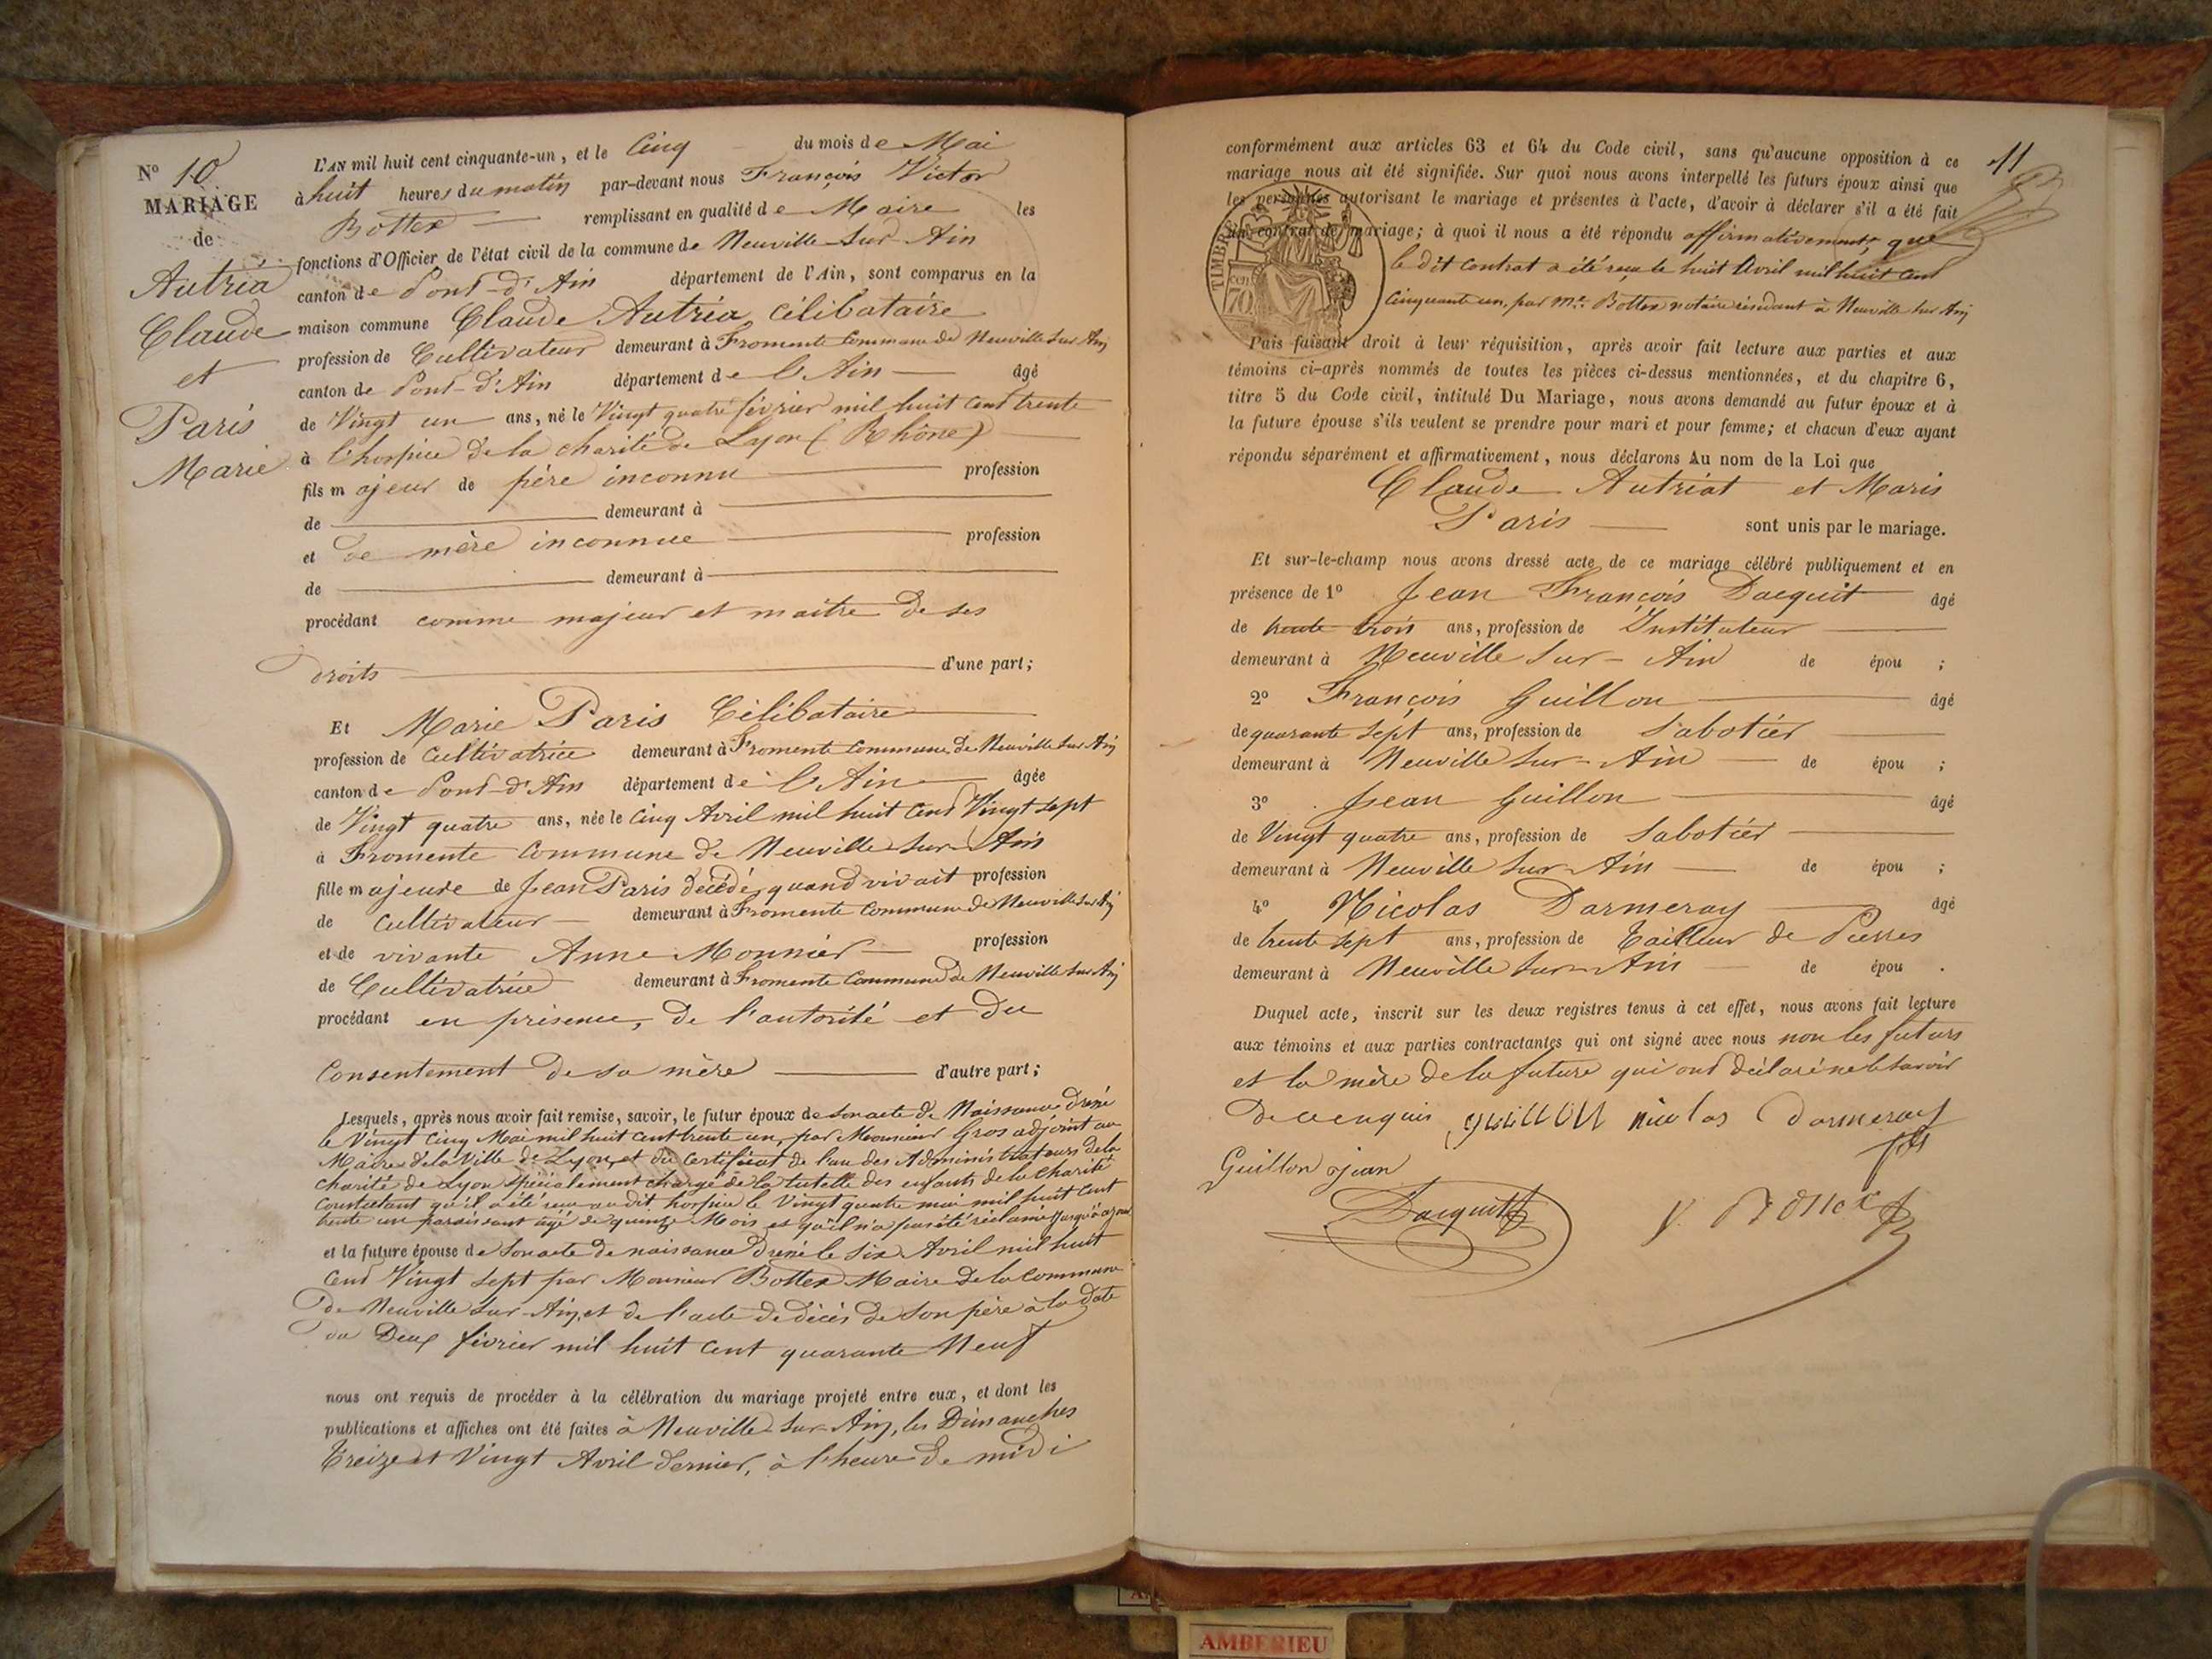 Nº 10
MARIAGE
de
Autria
Claude
et
Paris
Marie
L'AN mil huit cent cinquante-un, et le Cinq du mois de Mai
à huit heures du matin par-devant nous François Victor
Bottex remplissant en qualité de Maire les
fonctions d'Officier de l'état civil de la commune de Neuville Sur Ain
canton de Pont-d'Ain département de l'Ain, sont comparus en la
maison commune Claude Autria, célibataire
profession de Cultivateur demeurant à Fromente Commune de Neuville Sur Ain
canton de Pont-d'Ain département de l'Ain âgé
de Vingt un ans, né le Vingt quatre février mil huit cent trente
à l'hospice de la charité de Lyon (Rhône)
fils majeur de père inconnu profession
de demeurant à
et de mère inconnue profession
de demeurant à
procédant comme majeur et maitre de ses
droits d'une part;
Et Marie Paris Célibataire
profession de Cultivatrice demeurant à Fromente Commune de Neuville Sur Ain
canton de Pont-d'Ain département de l'Ain âgée
de Vingt quatre ans, née le Cinq Avril mil huit Cent Vingt Sept
à Fromente Commune de Neuville Sur Ain
fille majeure de Jean Paris décédé, quand vivait profession
de Cultivateur demeurant à Fromente Commune de Neuville Sur Ain
et de vivante Anne Monnier profession
de Cultivatrice demeurant à Fromente Commune de Neuville Sur Ain
procédant en présence, de l'autorité et du
Consentement de sa mère d'autre part;
Lesquels, après nous avoir fait remise, savoir, le futur époux de Son acte de Naissance Dressé
le Vingt Cinq Mai mil huit Cent trente un, par Monsieur Gros adjoint au
Maire de la Ville de Lyon, et du Certificat de l'un des Administrateurs de la
Charité de Lyon Spécialement chargé de la tutelle des enfants de la Charité
Constatant qu'il a été reçu au dit hospice le Vingt quatre mai mil huit Cent
trente un paraissant âgé de quinze Mois et qu'il n'a pas été réclamé jusqu'à ce jour
et la future épouse de Son acte de naissance Dressé le Six Avril mil huit
Cent Vingt Sept par Monsieur Bottex Maire de la Commune
de Neuville Sur Ain, et de l'acte de décès de Son père à la date
du Deux février mil huit Cent quarante Neuf
nous ont requis de procéder à la célébration du mariage projeté entre eux, et dont les
publications et affiches ont été faites à Neuville Sur Ain, les Dimanches
Treize et Vingt Avril dernier, à l'heure de midi
11
conformément aux articles 63 et 64 du Code civil, sans qu'aucune opposition à ce
mariage nous ait été signifiée. Sur quoi nous avons interpellé les futurs époux ainsi que
les personnes autorisant le mariage et présentes à l'acte, d'avoir à déclarer s'il a été fait
un contrat de mariage; à quoi il nous a été répondu affirmativement, que
le dit Contrat a été reçu le huit Avril mil huit Cent
Cinquante un, par Me. Bottex notaire résidant à Neuville Sur Ain
TIMBRE
cen
70
Puis faisant droit à leur réquisition, après avoir fait lecture aux parties et aux
témoins ci-après nommés de toutes les pièces ci-dessus mentionnées, et du chapitre 6,
titre 5 du Code civil, intitulé Du Mariage, nous avons demandé au futur époux et à
la future épouse s'ils veulent se prendre pour mari et pour femme; et chacun d'eux ayant
répondu séparément et affirmativement, nous déclarons Au nom de la Loi que
Claude Autriat et Maris
Paris sont unis par le mariage.
Et sur-le-champ nous avons dressé acte de ce mariage célébré publiquement et en
présence de 1º Jean François Dacquit âgé
de trente trois ans, profession de Instituteur
demeurant à Neuville Sur-Ain de épou ;
2º François Guillon âgé
de quarante Sept ans, profession de Sabotier
demeurant à Neuville Sur-Ain de épou ;
3º Jean Guillon âgé
de Vingt quatre ans, profession de Sabotier
demeurant à Neuville Sur Ain de épou ;
4º Nicolas Darmeray âgé
de trente Sept ans, profession de Tailleur de Pierres
demeurant à Neuville Sur-Ain de épou .
Duquel acte, inscrit sur les deux registres tenus à cet effet, nous avons fait lecture
aux témoins et aux parties contractantes qui ont signé avec nous non les futurs
et la mère de la future qui ont déclaré ne le Savoir
De ce enquis guillon nicolas Darmeray
Guillon jean
Dacquit V. Bottex
AMBERIEU